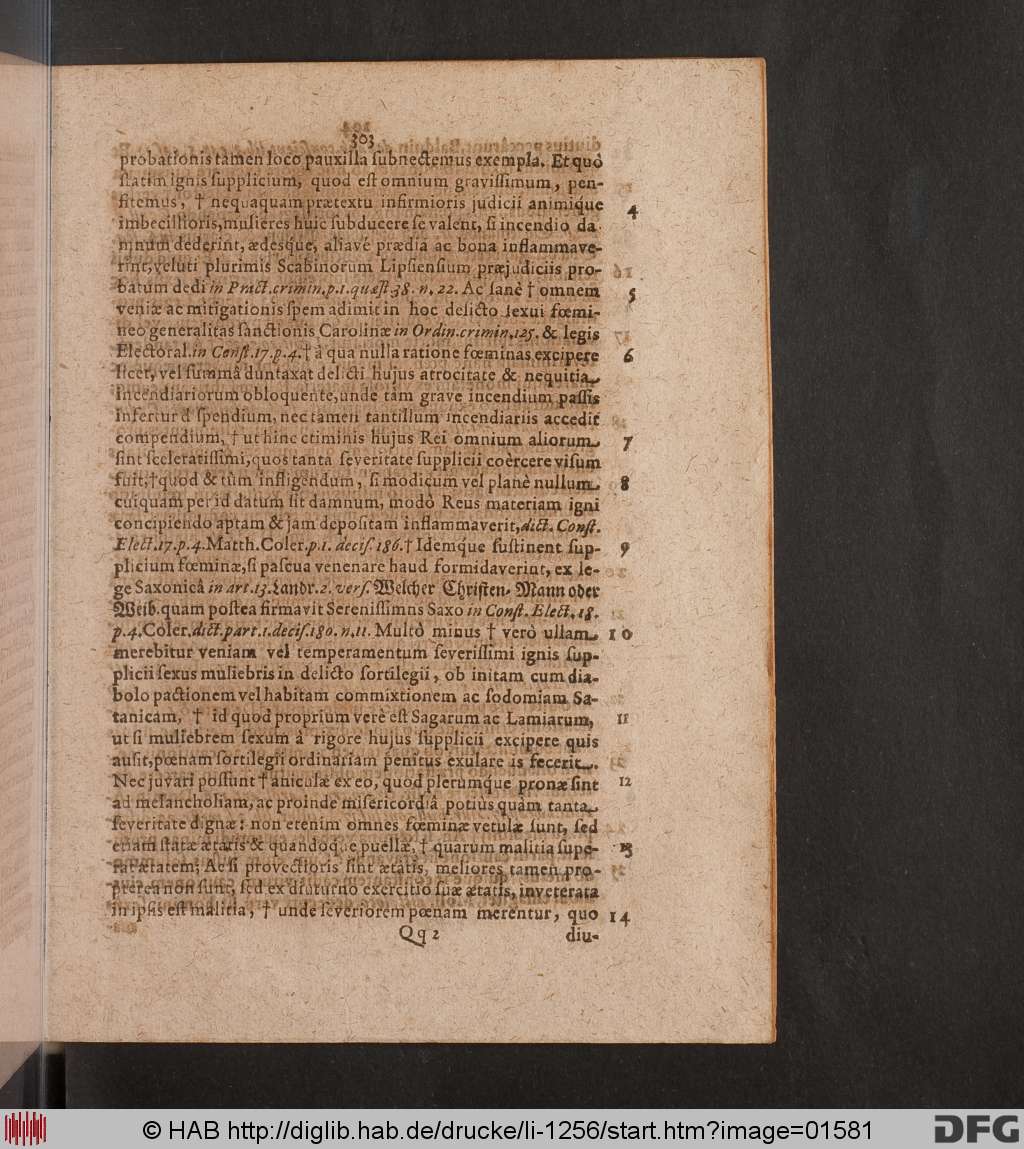 303
probationis tamen loco pauxilla ſubnectemus exempla. Et quò
ſtatim ignis ſupplicium, quod eſt omnium graviſſimum, pen-
ſitemus, † nequaquam prætextu infirmioris judicii animique 4
imbecillioris, mulieres huic ſubducere ſe valent, ſi incendio da
mnum dederint, ædesque, aliavé prædia ac bona inflammave-
rint, veluti plurimis Scabinorum Lipſienſium præjudiciis pro-
batum dedi in Pract. crimin. p. 1. quæſt. 38. n. 22. Ac ſanè † omnem 5
veniæ ac mitigationis ſpem adimit in hoc delicto ſexui fœmi-
neo generalitas ſanctionis Carolinæ in Ordin. crimin. 125. & legis
Electoral. in Conſt. 17. p. 4. † â qua nulla ratione fœminas excipere 6
licet, vel ſummâ duntaxat delicti hujus atrocitate & nequitia
incendiariorum obloquente, unde tàm grave incendium paſſis
infertur d ſpendium, nec tamen tantillum incendiariis accedit
compendium, † ut hinc ctiminis hujus Rei omnium aliorum 7
ſint ſceleratiſſimi, quos tanta ſeveritate ſupplicii coèrcere viſum
fuit; † quod & tùm infligendum, ſi modicum vel planè nullum 8
cuiquam per id datum ſit damnum, modò Reus materiam igni
concipiendo aptam & jam depoſitam inflammaverit, dict. Conſt.
Elect. 17. p. 4. Matth. Coler. p. 1. deciſ. 186. † Idemq́ue ſuſtinent ſup- 9
plicium fœminæ, ſi paſcua venenare haud formidaverint, ex le-
ge Saxonicâ in art. 13. Landr. 2. verſ. Welcher Chriſten- Mann oder
Weib. quam poſtea firmavit Sereniſſimns Saxo in Conſt. Elect. 18.
p. 4. Coler. dict. part. 1. deciſ. 180. n. 11. Multò minus † verò ullam 10
merebitur veniam vel temperamentum ſeveriſſimi ignis ſup-
plicii ſexus muliebris in delicto ſortilegii, ob initam cum dia-
bolo pactionem vel habitam commixtionem ac ſodomiam Sa-
tanicam, † id quod proprium verè eſt Sagarum ac Lamiarum, 11
ut ſi muliebrem ſexum â rigore hujus ſupplicii excipere quis
auſit, pœnam ſortilegii ordinariam penitus exulare is fecerit.
Nec juvari poſſunt † aniculæ ex eo, quod plerumque pronæ ſint 12
ad melancholiam, ac proinde miſericordiâ potiùs quàm tanta
ſeveritate dignæ: non etenim omnes fœminæ vetulæ ſunt, ſed
etiam ſtatæ ætatis & quandoque puellæ, † quarum malitia ſupe- 13
rat ætatem; Ac ſi provectioris ſint ætatis, meliores tamen pro-
pterea non ſunt, ſed ex diuturno exercitio ſuæ ætatis, inveterata
in ipſis eſt malitia, † unde ſeveriorem pœnam merentur, quo 14
Qq 2 diu-
© HAB http://diglib.hab.de/drucke/li-1256/start.htm?image=01581
DFG